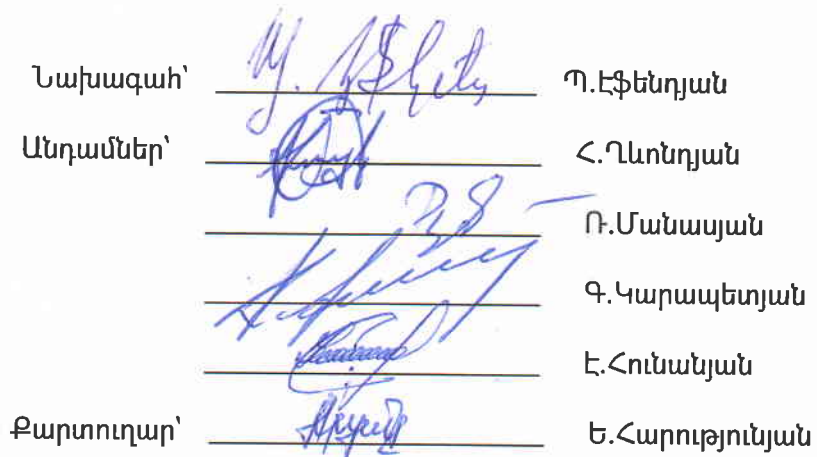 Նախագահ՝ Պ.Էֆենդյան
Անդամներ՝ Հ.Ղևոնդյան
Ռ.Մանասյան
Գ.Կարապետյան
Է.Հունանյան
Քարտուղար՝ Ե.Հարությունյան